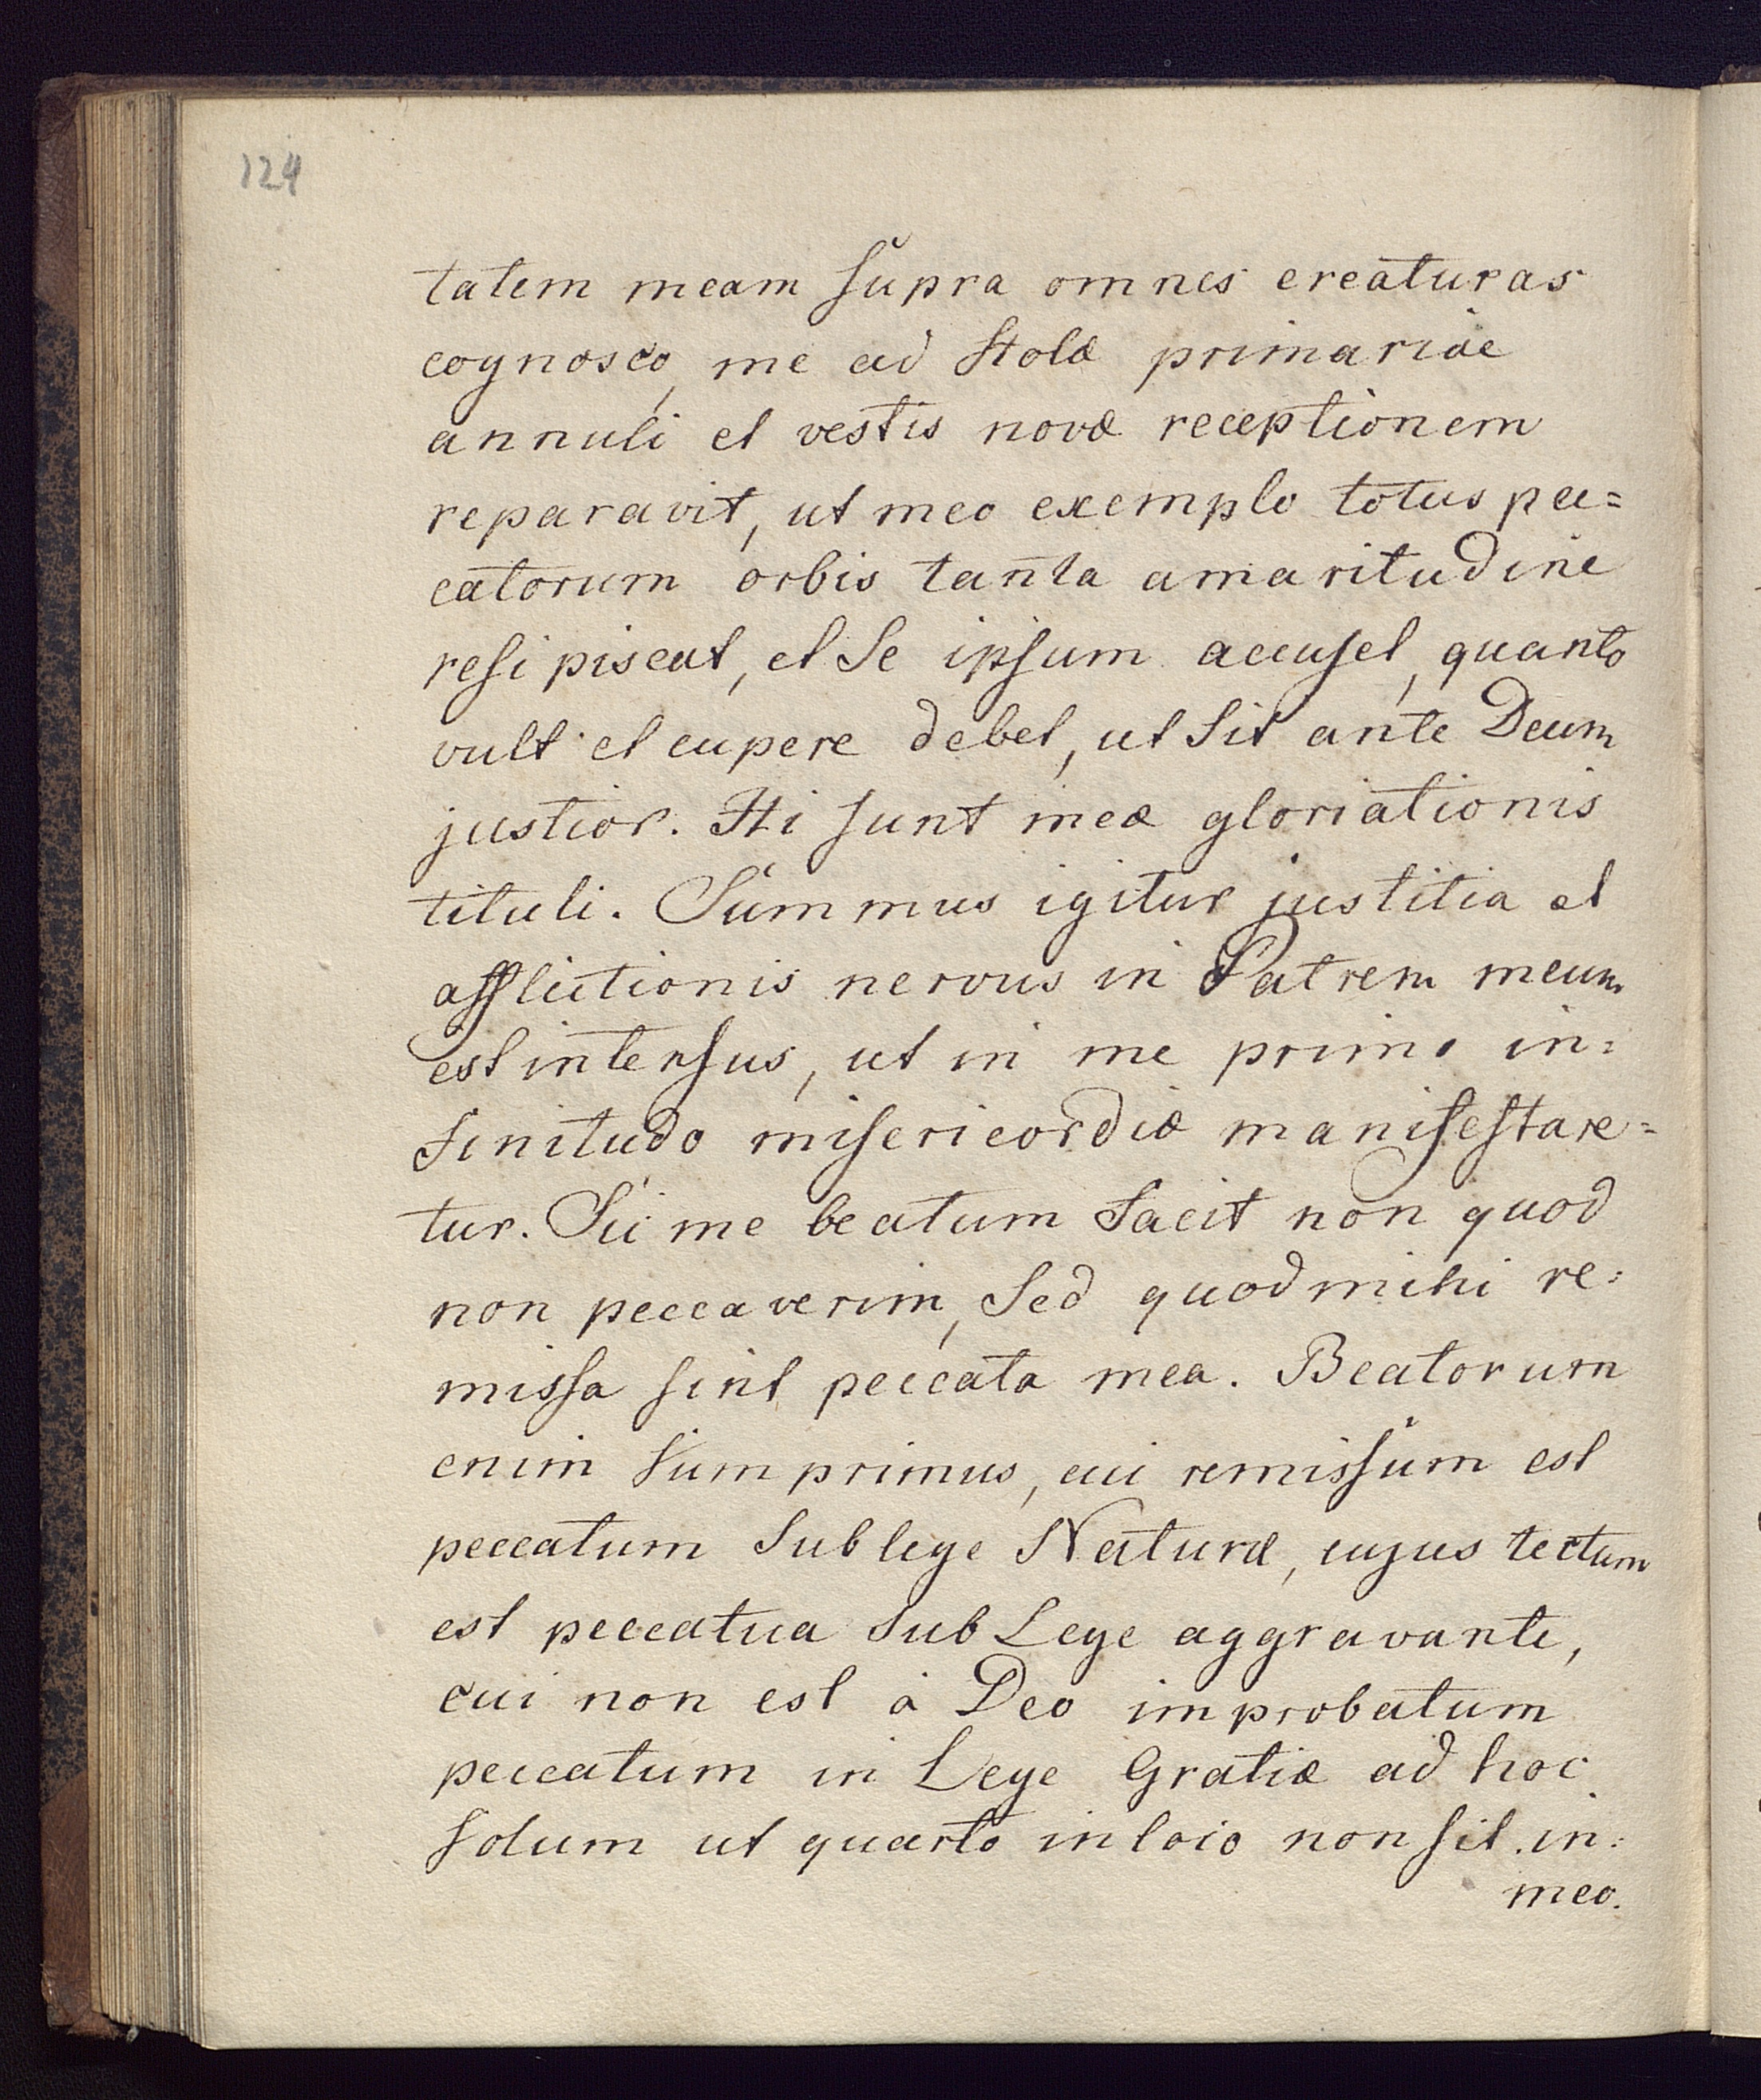 124
tatem meam supra omnes creaturas
cognosco, me ad stolæ primariæ
annuli et vestis novæ receptionem
reparavit, ut meo exemplo totus pec=
catorum orbis tanta amaritudine
resipiscat, et se ipsum accuset, quanto
vult et cupere debet, ut sit ante Deum
justior. Hi sunt meæ gloriationis
tituli. Summus igitur justitia et
afflictionis nervus in Patrem meum
est intensus, ut in me primo in=
finitudo misericordiæ manifestare=
tur. Sic me beatum facit non quod
non peccaverim, sed quod mihi re=
missa sint peccata mea. Beatorum
enim sum primus, cui remissum est
peccatum sub lege Naturæ, cujus tectum
est peccatua sub Lege aggravante,
cui non est à Deo improbatum
peccatum in Lege Gratiæ ad hoc
solum ut quarto in loco non sit in=
meo.